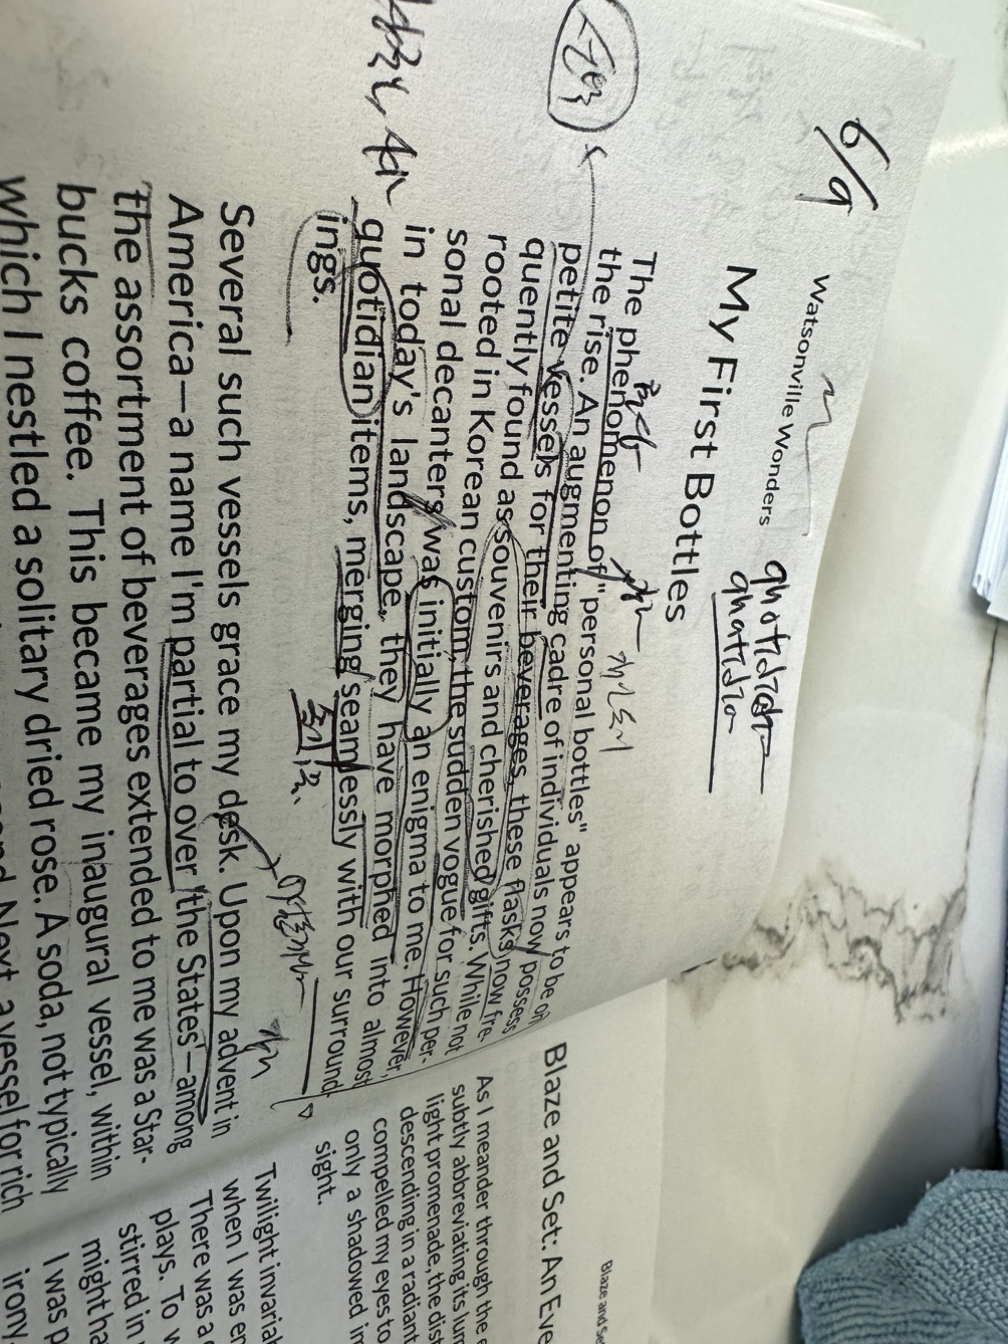 6/9
Watsonville Wonders
quotidian
quotidia
My First Bottles
The phenomenon of "personal bottles" appears to be on
the rise. An augmenting cadre of individuals now possess
petite vessels for their beverages, these flasks now fre-
quently found as souvenirs and cherished gifts. While not
rooted in Korean custom, the sudden vogue for such per-
sonal decanters was initially an enigma to me. However,
in today's landscape, they have morphed into almost
quotidian items, merging seamlessly with our surround-
ings.
Several such vessels grace my desk. Upon my advent in
America—a name I'm partial to over 'the States'—among
the assortment of beverages extended to me was a Star-
bucks coffee. This became my inaugural vessel, within
which I nestled a solitary dried rose. A soda, not typically
Next, a vessel for rich
Blaze and Se
Blaze and Set: An Eve
As I meander through the e
subtly abbreviating its lum
light promenade, the dist
descending in a radiant
compelled my eyes to
only a shadowed in
sight.
Twilight invariab
when I was en
There was a
plays. To
stirred in
might ha
I was p
irony